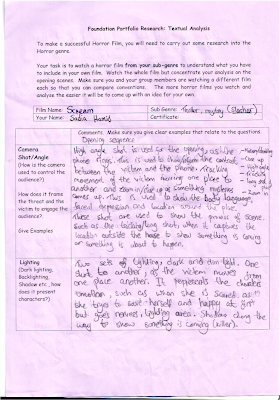 Foundation Portfolio Research: Textual Analysis
To make a successful Horror Film, you will need to carry out some research into the
Horror genre.
Your task is to watch a horror film from your sub-genre to understand what you have
to include in your own film. Watch the whole film but concentrate your analysis on the
opening scenes. Make sure you and your group members are watching a different film
each so that you can compare conventions. The more horror films you watch and
analyse the easier it will be to come up with an idea for your own.
Film Name: Scream
Sub Genre: Thriller, mystery (Slasher)
Your Name: Sadia Hamid
Certificate:
Comments: Make sure you give clear examples that relate to the questions
Opening sequence
Camera
Shot/Angle
(How is the camera
used to control the
audience?)
How does it frame
the threat and the
victim to engage the
audience?
Give Examples
High angle shot is used for the opening, as the
phone rings. This is used to show the contact
between the victim and the phone. Tracking
movement of the victim moving one place to
another and zoom in/close up of something mysterious
comes up. This is used to show the body language,
facial expression and
These shot are used to show the process of scene.
such as the tracking/long shot, when it captures the
outside the house to show something is coming
or something is about to happen.
Lighting
(Dark lighting,
Backlighting,
Shadow etc, how
does it present
characters?)
Two sets of lighting, dark and dim light. One
dark to another, as the victim moves from
one place another. It represents the characters
emotion, such as when she is scared, as
she tries to
herself and happy at first
but goes nervous, lighting area. Shadow along the
way to show something is coming (killer).